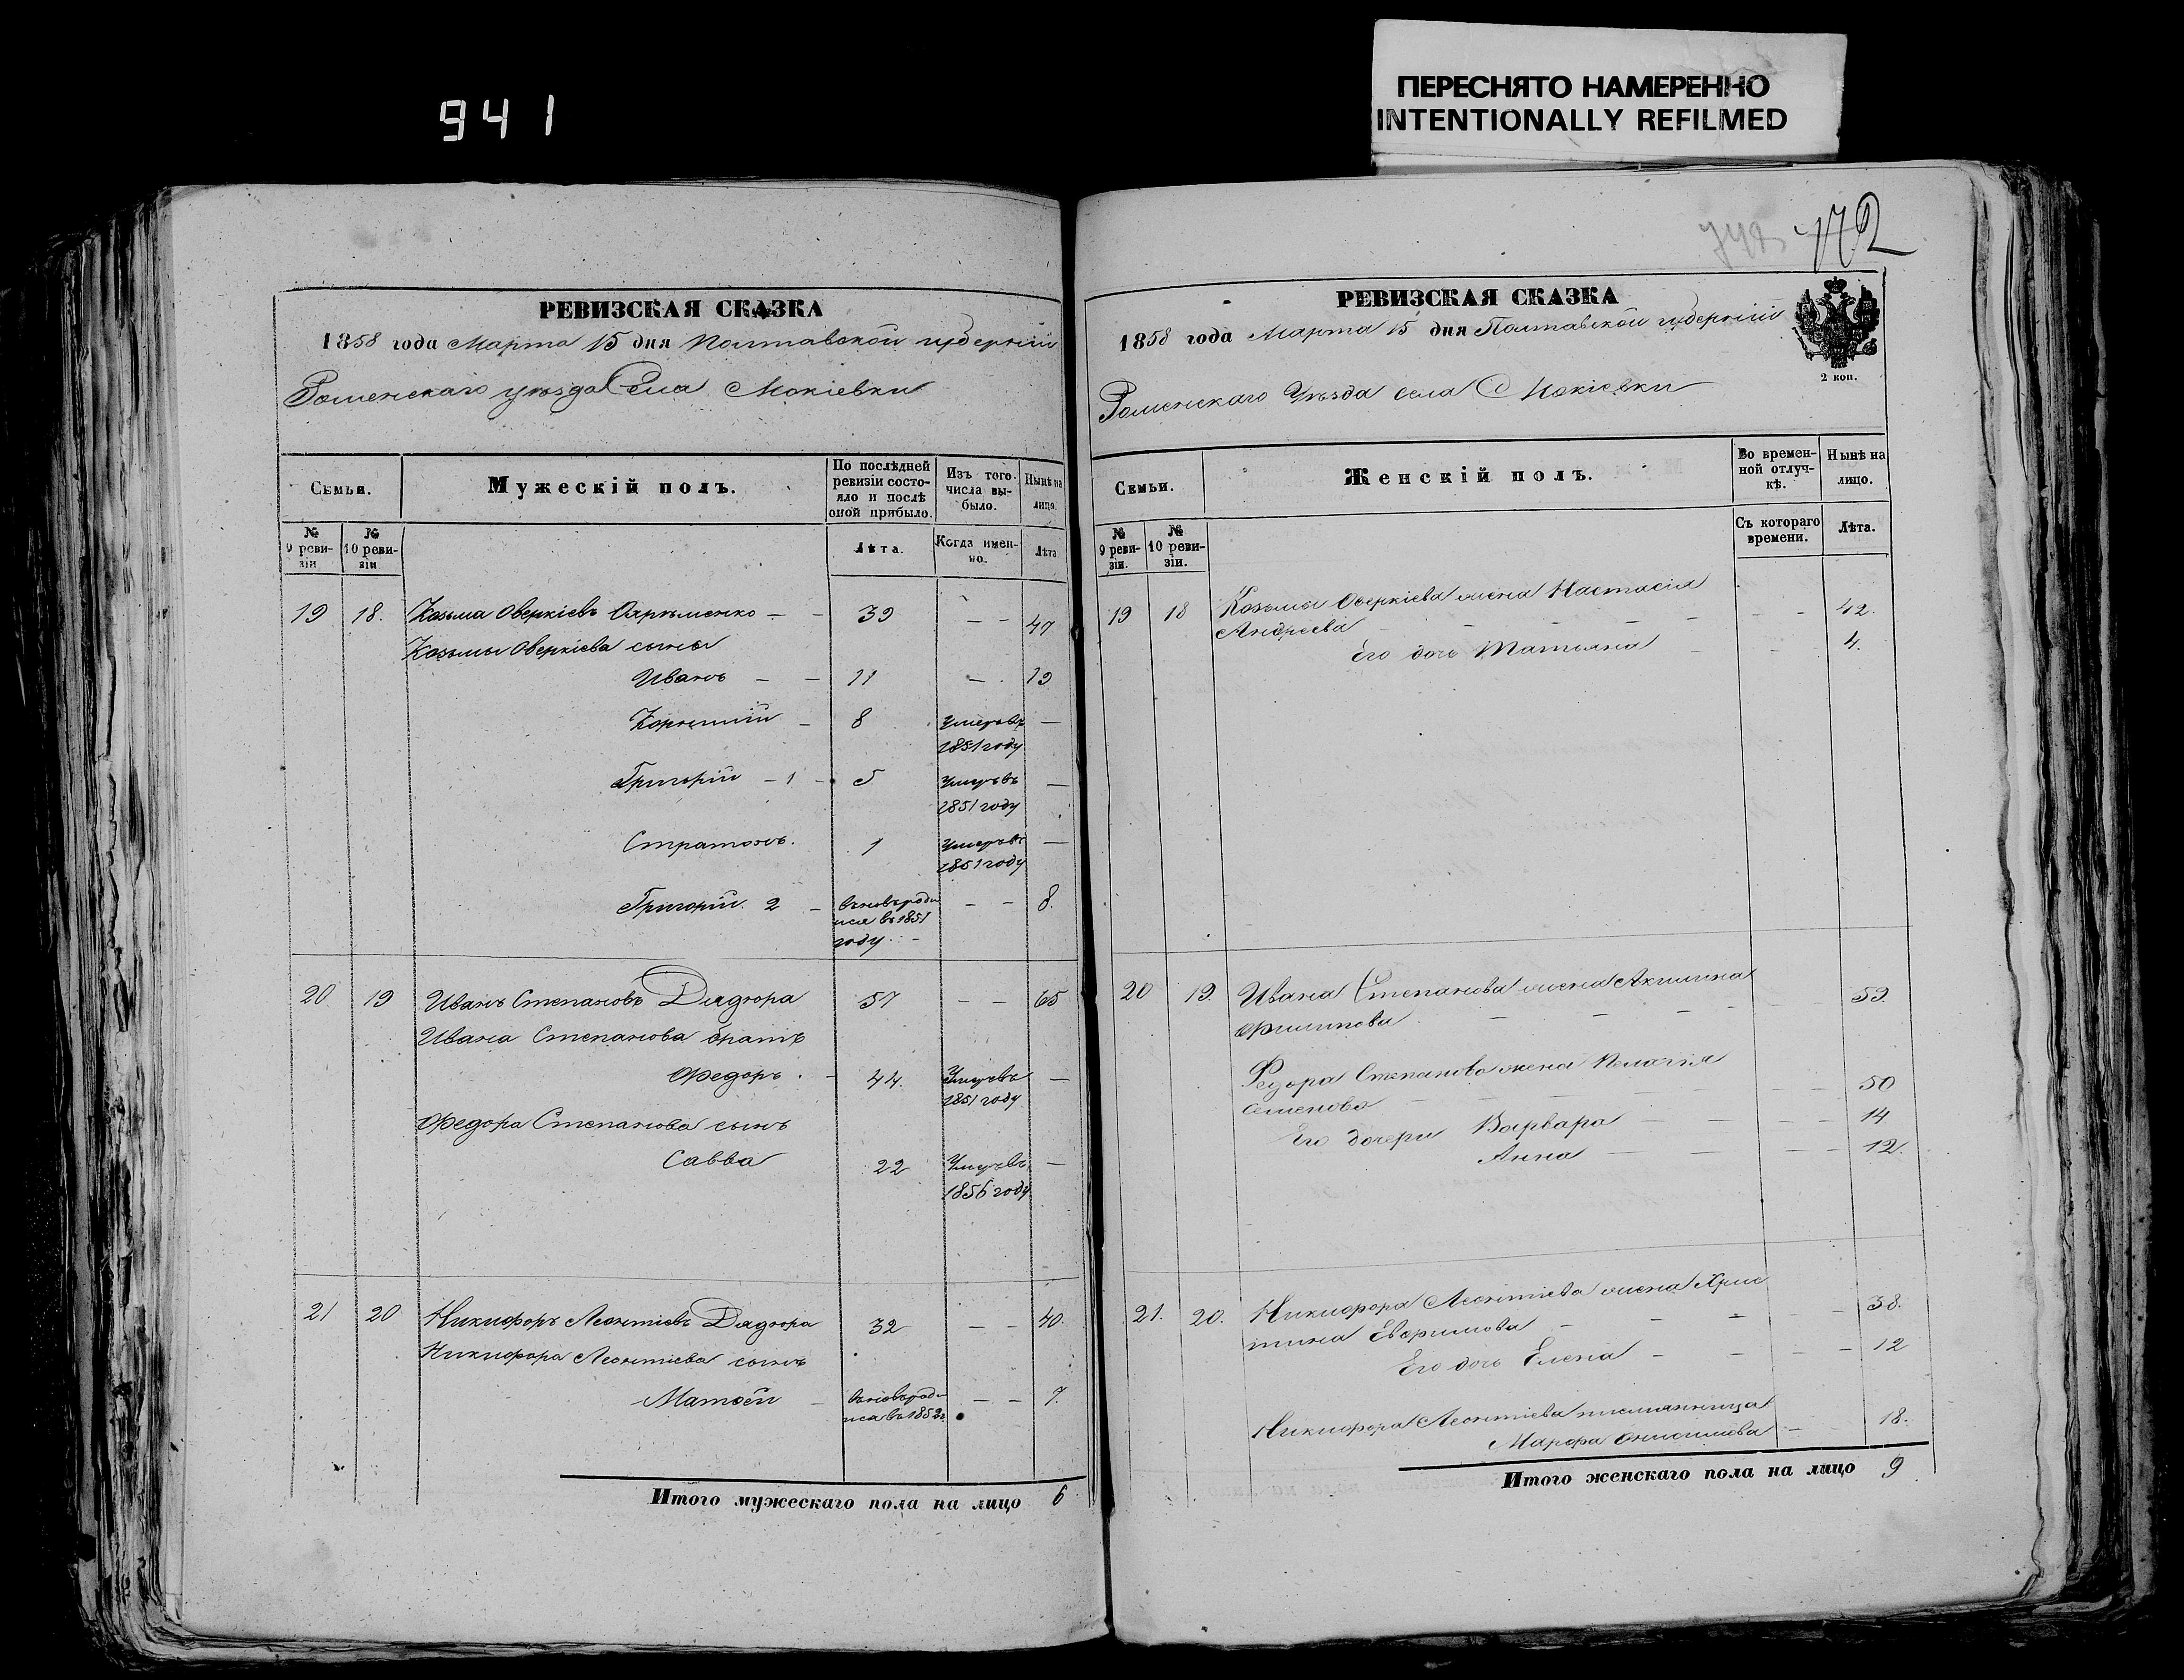 941
ПЕРЕСНЯТО НАМЕРЕННО
INTENTIONALLY REFILMED
172
РЕВИЗСКАЯ СКАЗКА
1858 года Марта 15 дня Полтавской губерніи
Роменскаго уѣзда Села Мокіевки
Семьи.
Мужескій полъ.
По послѣдней ревизіи состояло и послѣ оной прибыло.
Изъ того числа выбыло.
Нынѣ на лицо.
№ 9 ревизіи
№ 10 ревизіи
Лѣта.
Когда именно.
Лѣта
19 18. Козьма Оверкіевъ — 39 — — 47
Козьмы Оверкіева сыны
Иванъ — — 11 — 19
8 Умеръ въ —
1851 году
Григорій — 1 — 5 Умеръ въ —
1851 году
Стратонъ. 1 Умеръ въ —
1851 году
Григорій. 2 — вновь роди — — 8.
лся въ 1851
году. —
20 19 Иванъ Степановъ Дядюра 57 — — 65
Ивана Степанова братъ
Федоръ. — 44. Умеръ въ —
1851 году
Федора Степанова сынъ
Савва 22 Умеръ въ —
1856 году
21 20 Никифоръ Леонтіевъ Дядюра 32 — — 40.
Никифора Леонтіева сынъ
Матвѣй — вновь роди — — 7.
лся въ 1852 г
Итого мужескаго пола на лицо 6
РЕВИЗСКАЯ СКАЗКА
1858 года Марта 15 дня Полтавской губерніи
2 коп.
Роменскаго Уѣзда села Мокіевки
Семьи.
Женскій полъ.
Во временной отлучкѣ.
Нынѣ на лицо.
№ 9 ревизіи.
№ 10 ревизіи.
Съ котораго времени.
Лѣта.
19 18 Козьмы Оверкіева жена Настасія
Андреева — — — — — — 42.
Его дочь Татьяна — — — 4.
20 19. Ивана Степанова жена Акилина
Филипова — — — — — 59.
Федора Степанова жена Пелагія
Семенова — — — — — 50
Его дочери Варвара — — — — 14
Анна — — — — 12.
21. 20. Никифора Леонтіева жена Хрис
тина Евфимова — — — — 38.
Его дочь Елена — — — — 12
Никифора Леонтіева племянница
Марфа Онисимова — 18.
Итого женскаго пола на лицо 9